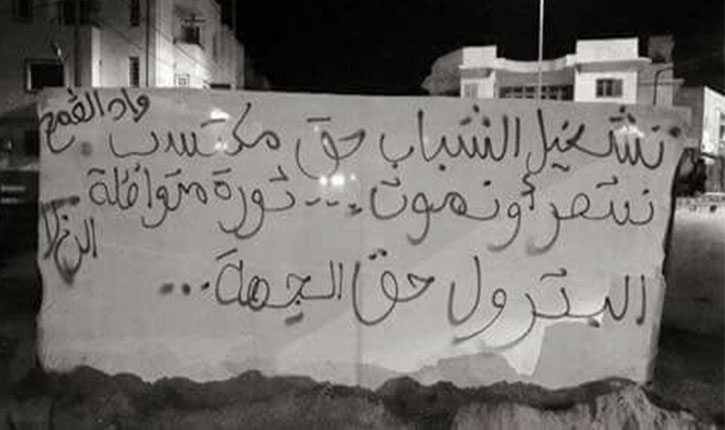 تشغيل الشباب حق مكتسب
ننتصر أو نموت... ثورة متواصلة
البترول حق الجهة...
واد القمح